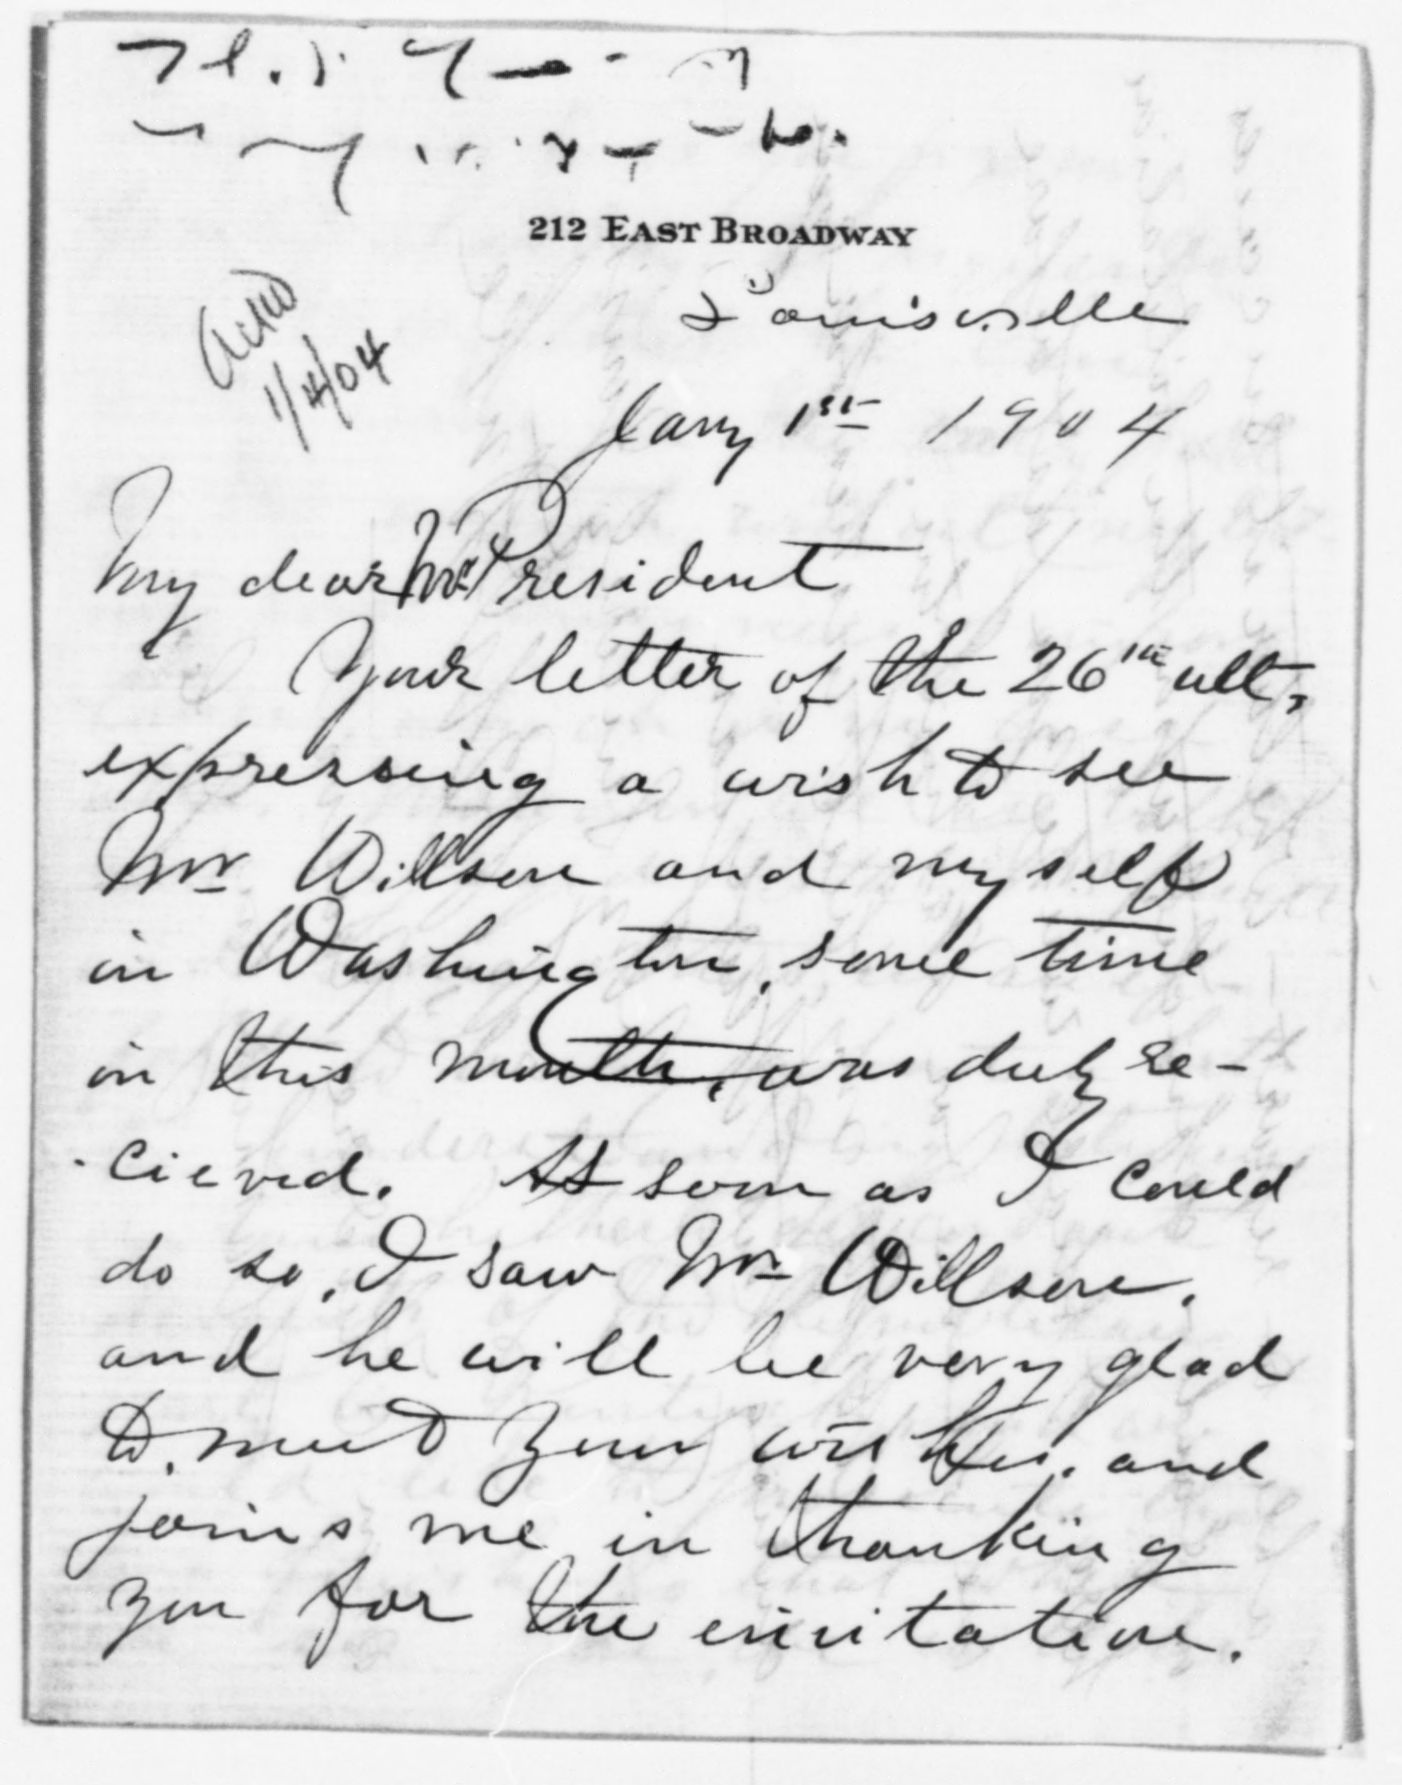 212 EAST BROADWAY
Louisville
Jany 1st 1904
Ackd
1/4/04
My dear Mr. President
Your letter of the 26th ult,
expressing a wish to see
Mr Willson and myself
in Washington, some time
in this month, was duly re-
cieved. As soon as I could
do so, I saw Mr Willson,
and he will be very glad
to meet your wishes, and
joins me in thanking
you for the invitation.